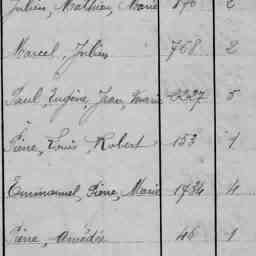 Julien, Mathieu, Marie 2
Marcel, Julien 768 2
Paul, Eugène, Jean, Marie 2227 5
Pierre, Louis, Robert 153 1
Emmanuel, Pierre, Marie 1934 4
Pierre, Amédée 46 1